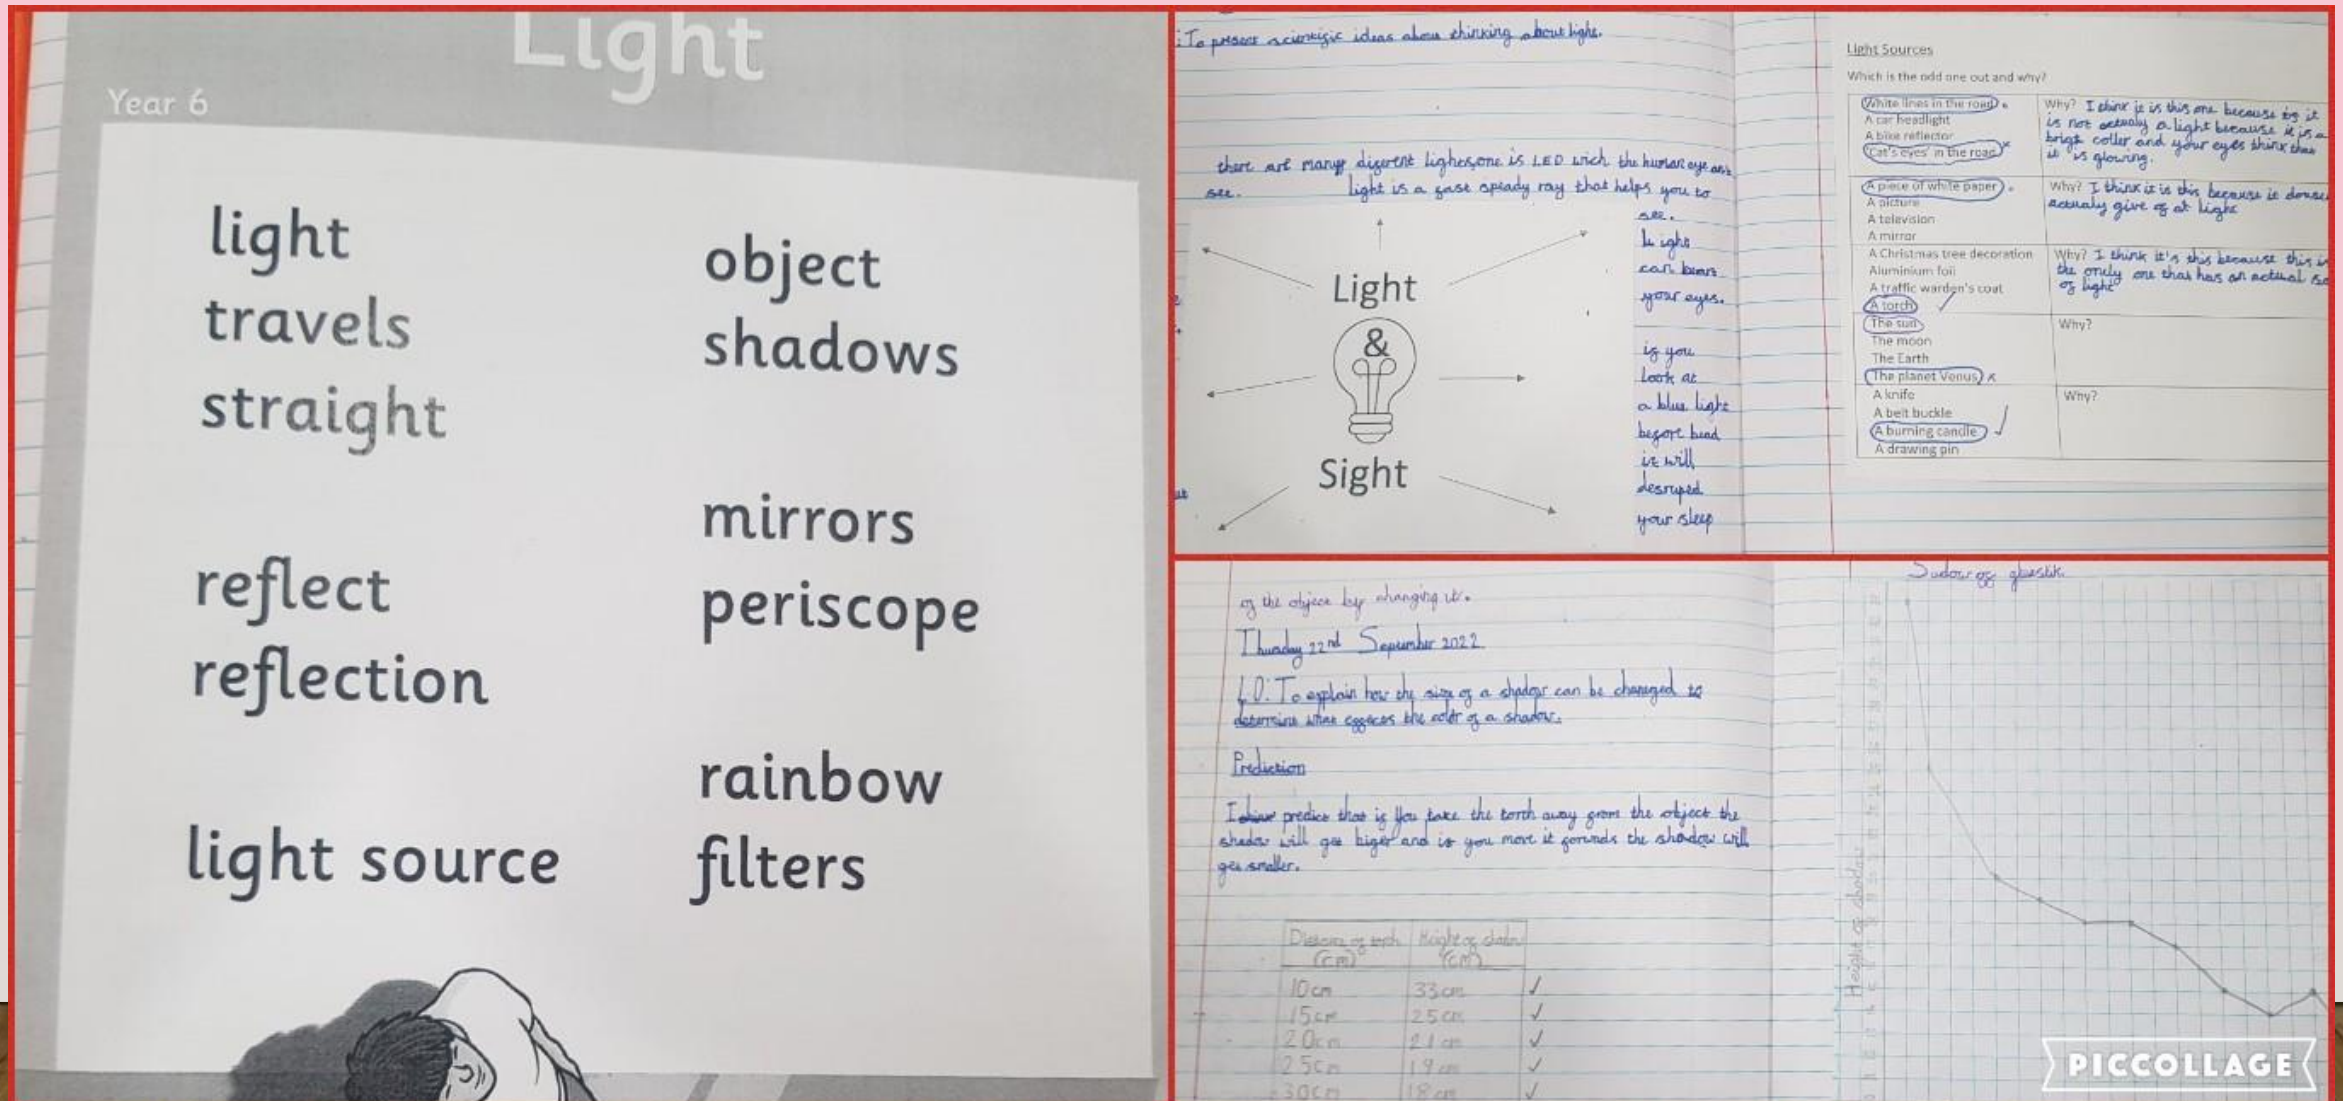 Light
Year 6
light
travels
straight
reflect
reflection
light source
object
shadows
mirrors
periscope
rainbow
filters
: To present scientific ideas about thinking about light.
there are many diferent lightes,one is LED wich the human eye
see.
light is a fast speady ray that helps you to
see.
Light
can
your eyes.
if you
look at
a blue light
before bead
it will
desruped
your sleep
Light
&
Sight
Light Sources
Which is the odd one out and why?
White lines in the road
A car headlight
A bike reflector
'Cat's eyes' in the road
Why? I think it is this one because it
is not actualy a light because it is a
brigt coller and your eyes think that
it is glowing.
A piece of white paper
A picture
A television
A mirror
Why? I think it is this because it
actualy give of at light
A Christmas tree decoration
Aluminium foil
A traffic warden's coat
A torch
Why? I think it's this because this is
the onely one that has an actual
of light
The sun
The moon
The Earth
The planet Venus
Why?
A knife
A belt buckle
A burning candle
A drawing pin
Why?
of the object by changing it.
Thursday 22nd September 2022
L.O: To explain how the size of a shadow can be changed to
determine what effects the of a shadow.
Prediction
I predict that if you take the torch away from the object the
shadow will get biger and if you move it forwards the shadow will
get smaller.
Distance of torch (cm) Height of shadow (cm)
10cm 33cm
15cm 25cm
20cm 21cm
25cm 19cm
30cm 18cm
Height of shadow
PICCOLLAGE